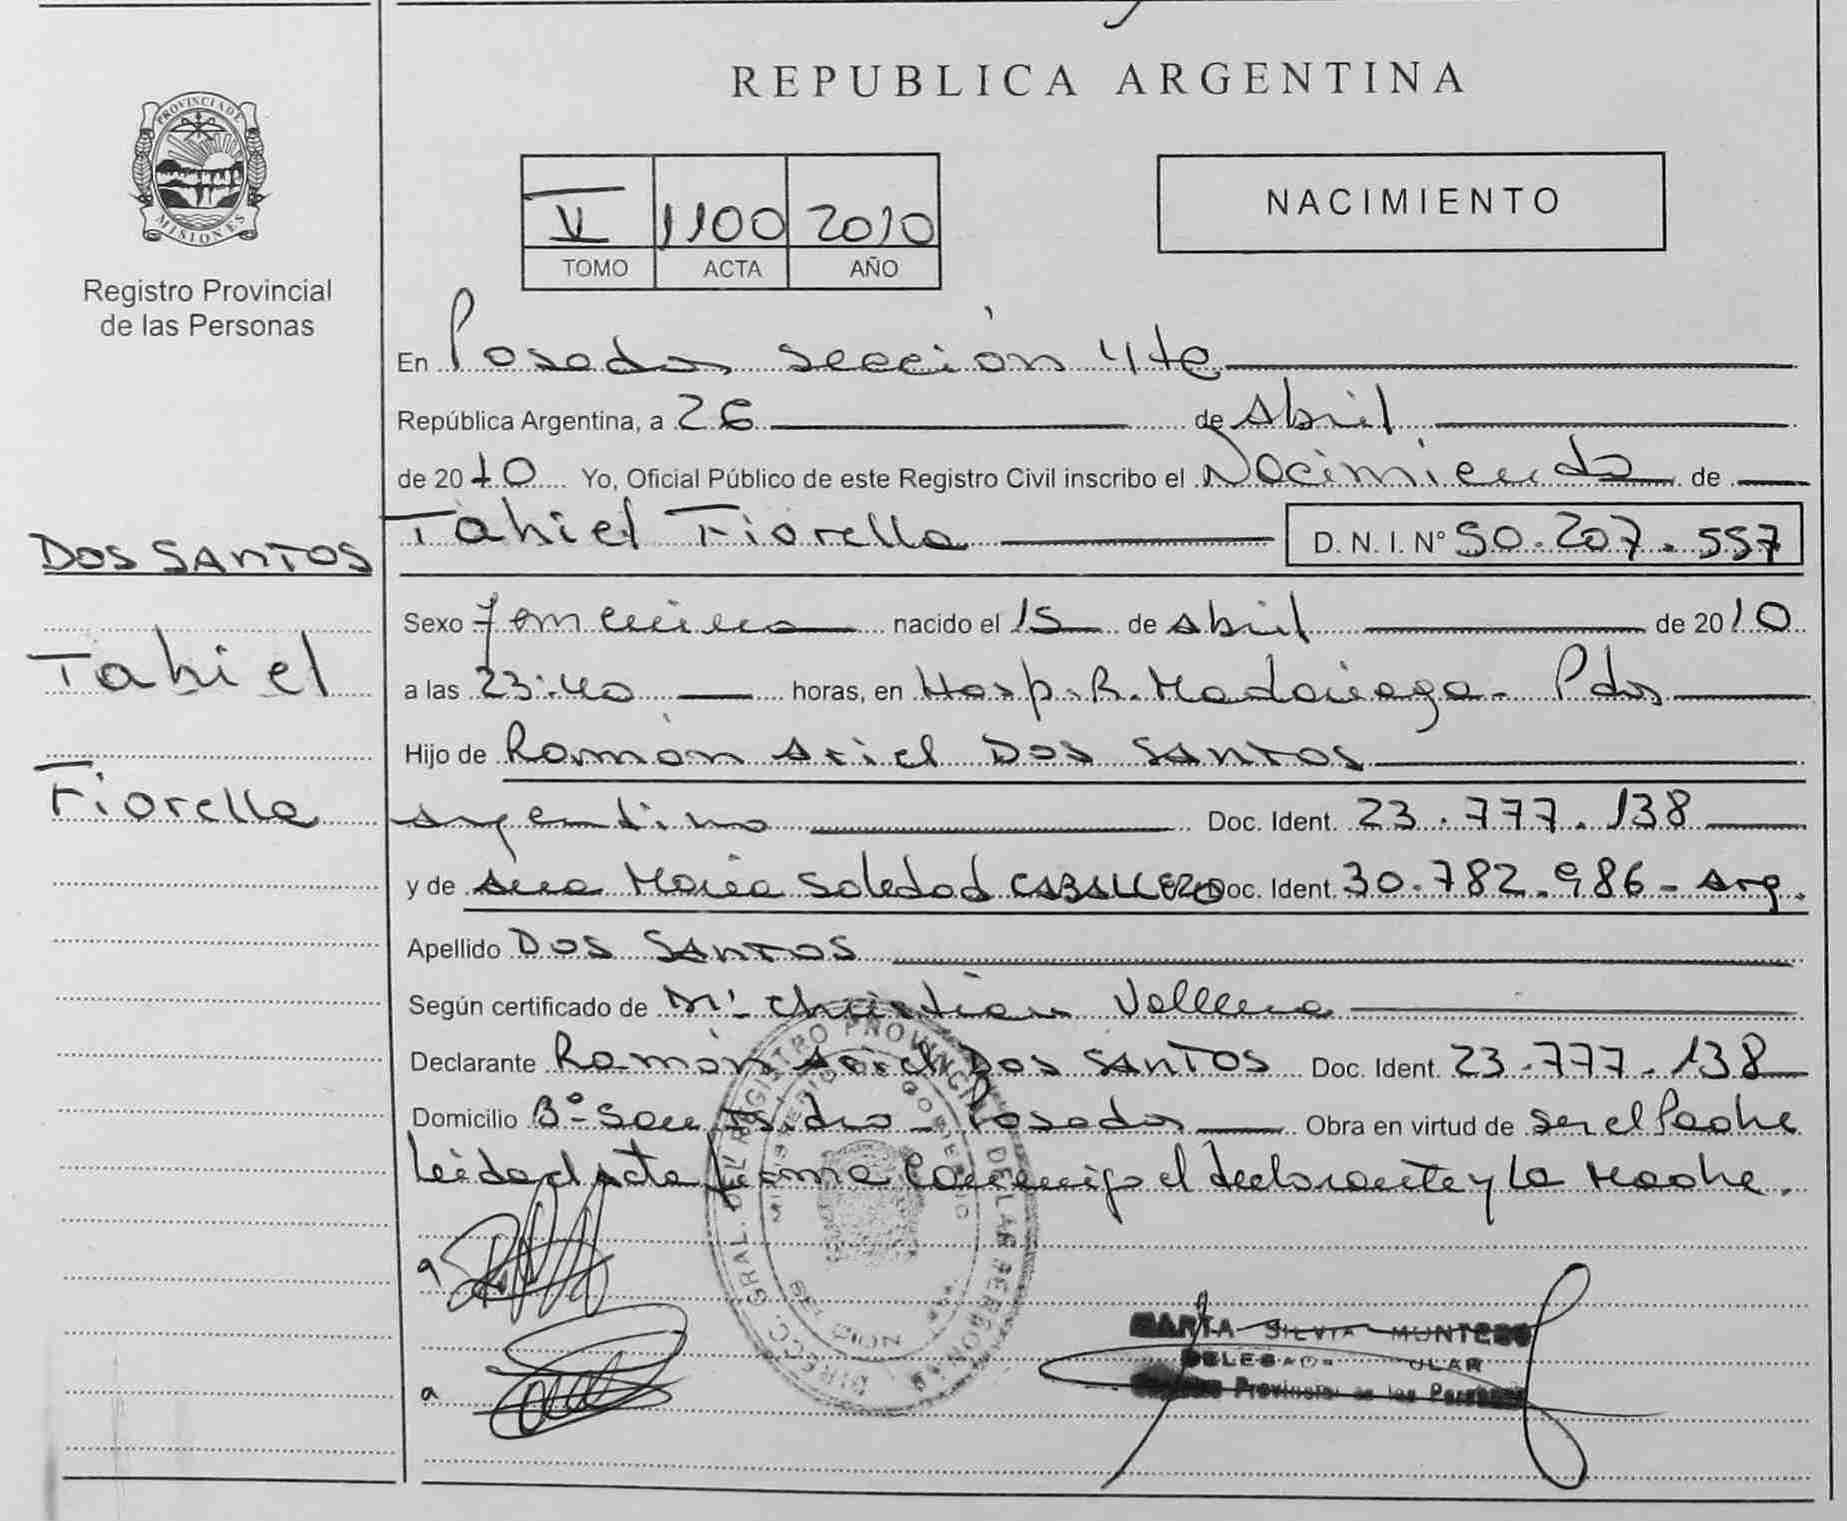 REPUBLICA ARGENTINA
PROVINCIA DE
MISIONES
Registro Provincial
de las Personas
V 1100 2010
TOMO ACTA AÑO
NACIMIENTO
En Posadas sección 4ta
República Argentina, a 26 de Abril
de 2010 Yo, Oficial Público de este Registro Civil inscribo el Nacimiento de
DOS SANTOS
Tahiel
Fiorella
Tahiel Fiorella D. N. I. N° 50.207.557
Sexo femenino nacido el 15 de Abril de 2010
a las 23:40 horas, en Hosp. R. Madariaga - Pdas
Hijo de Ramón Ariel DOS SANTOS
argentino Doc. Ident. 23.777.138
y de Ana María Soledad CABALLERO Doc. Ident. 30.782.986 - Arg.
Apellido DOS SANTOS
Según certificado de Christian
Declarante Ramón Ariel DOS SANTOS Doc. Ident. 23.777.138
Domicilio B° San Isidro - Posadas Obra en virtud de ser el Padre
Leida el acta firma conmigo el declarante y la Madre.
DIRECC. GRAL. DEL REGISTRO PROVINCIAL DE LAS PERSONAS
MINISTERIO DE GOBIERNO
a
a
MARTA SILVIA
Provincial de las Personas